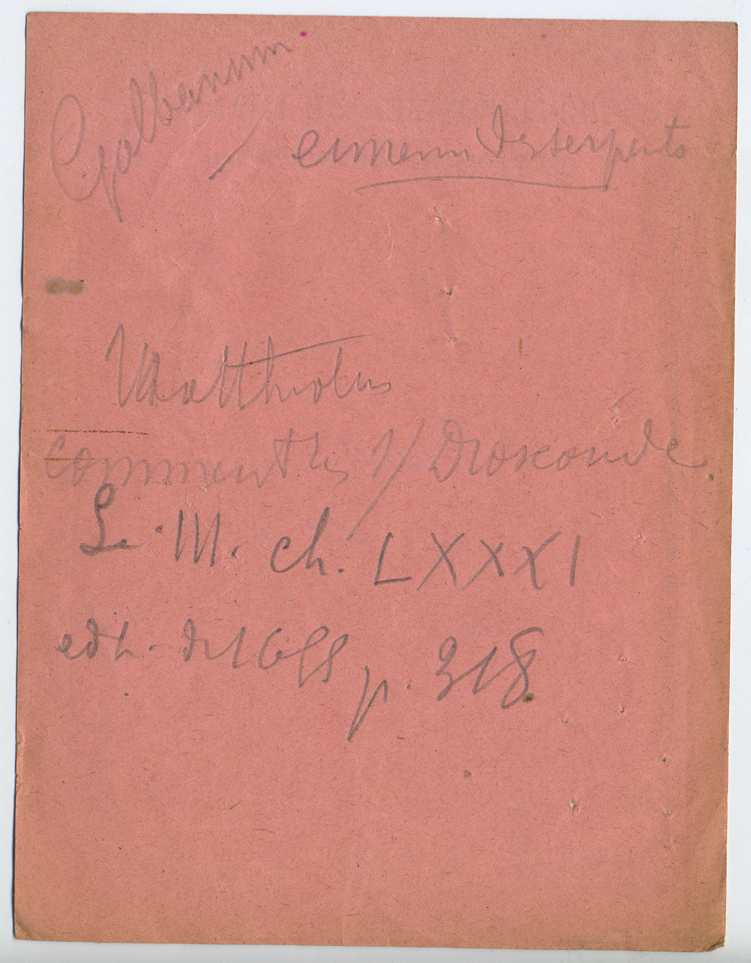 Galbanum
/ ennemi des serpents
Matthiolus
comment^res s/ Dioscoride.
L. III. ch. LXXXI
edt. de 1655 p. 318